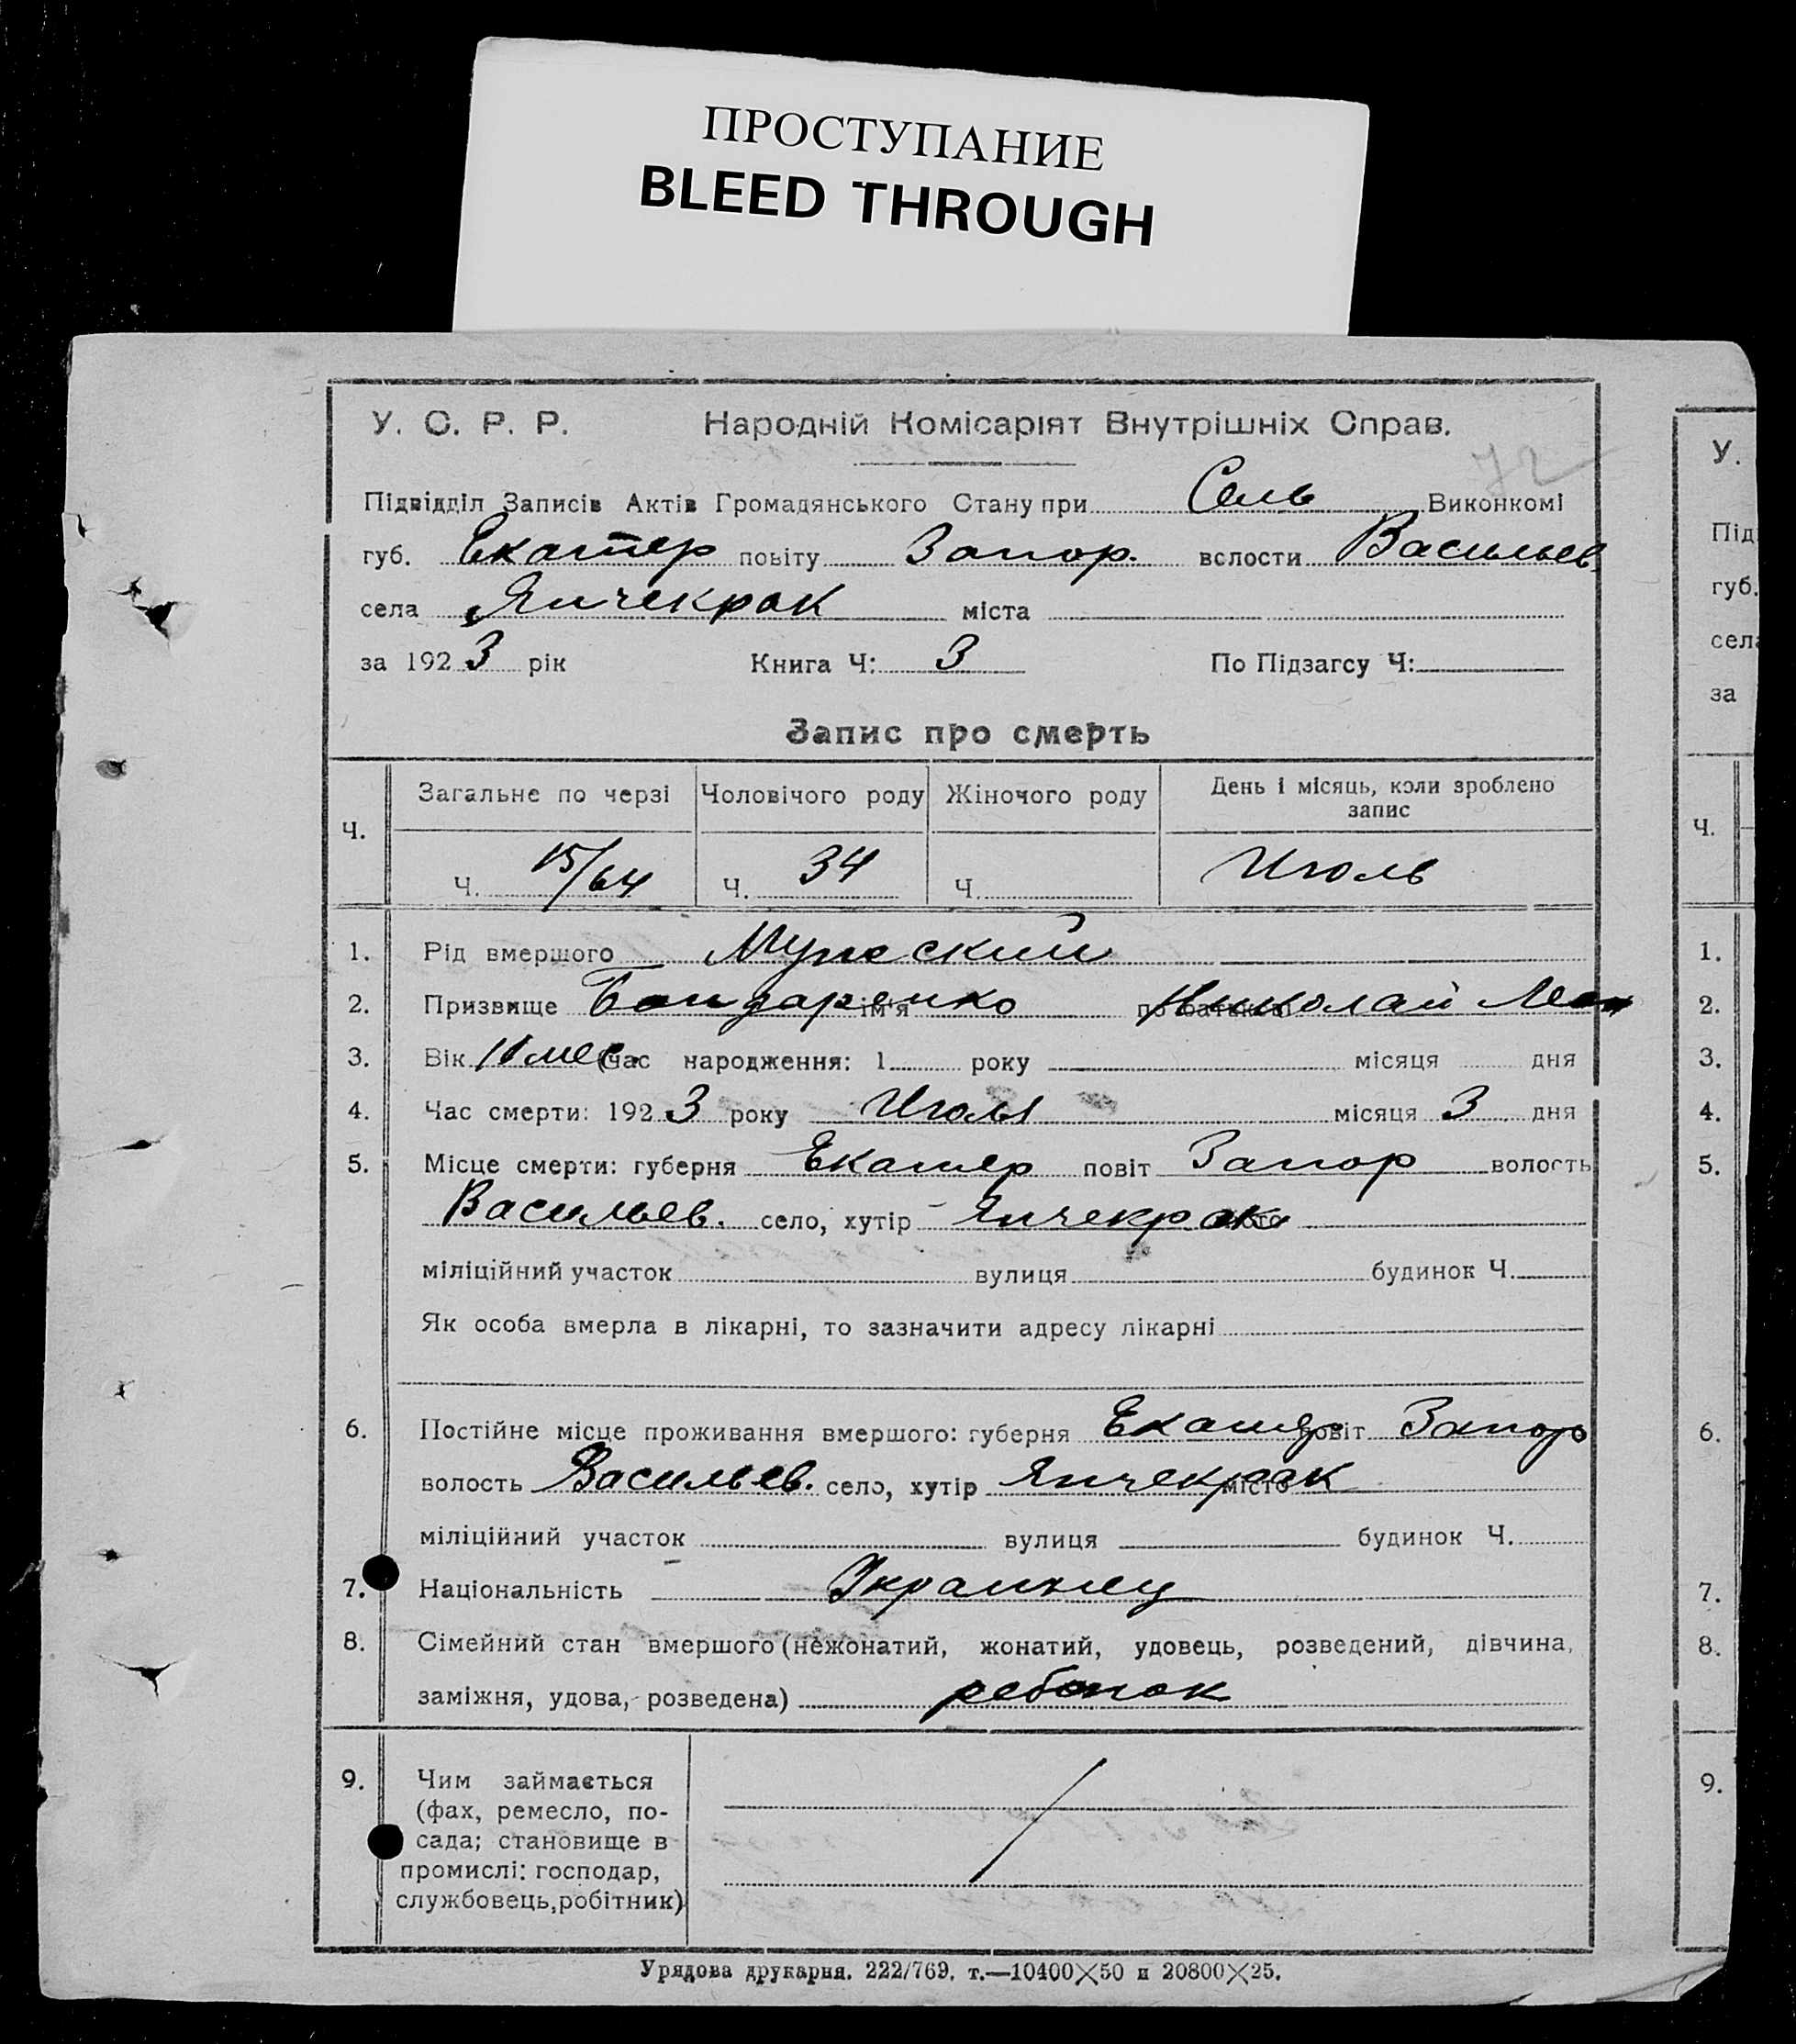 ПРОСТУПАНИЕ
BLEED THROUGH
У. С. Р. Р. Народній Комісаріят Внутрішніх Справ.
72
Підвідділ Записів Актів Громадянського Стану при Сель Виконкомі
губ. Екатер повіту Запор. волости Васильев.
села Янчекрак міста
за 1923 рік Книга Ч: 3 По Підзагсу Ч:
Запис про смерть
Ч. Загальне по черзі Чоловічого роду Жіночого роду День і місяць, коли зроблено запис
Ч. 15/64 Ч. 34 Ч. Июль
1. Рід вмершого Мужеский
2. Призвище Бондаренко ім'я по батькові Николай
3. Вік мес. (час народження: 1 року місяця дня
4. Час смерти: 1923 року Июля місяця 3 дня
5. Місце смерти: губерня Екатер повіт Запор волость
Васильев. село, хутір Янчекрак місто
міліційний участок вулиця будинок Ч.
Як особа вмерла в лікарні, то зазначити адресу лікарні
6. Постійне місце проживання вмершого: губерня Екатер повіт Запор
волость Васильев. село, хутір Янчекрак місто
міліційний участок вулиця будинок Ч.
7. Національність Украинец
8. Сімейний стан вмершого (нежонатий, жонатий, удовець, розведений, дівчина,
заміжня, удова, розведена) ребенок
9. Чим займається
(фах, ремесло, по-
сада; становище в
промислі: господар,
службовець, робітник)
Урядова друкарня. 222/769. т.—10400×50 и 20800×25.
У.
Під
губ.
села
за
Ч.
1.
2.
3.
4.
5.
6.
7.
8.
9.